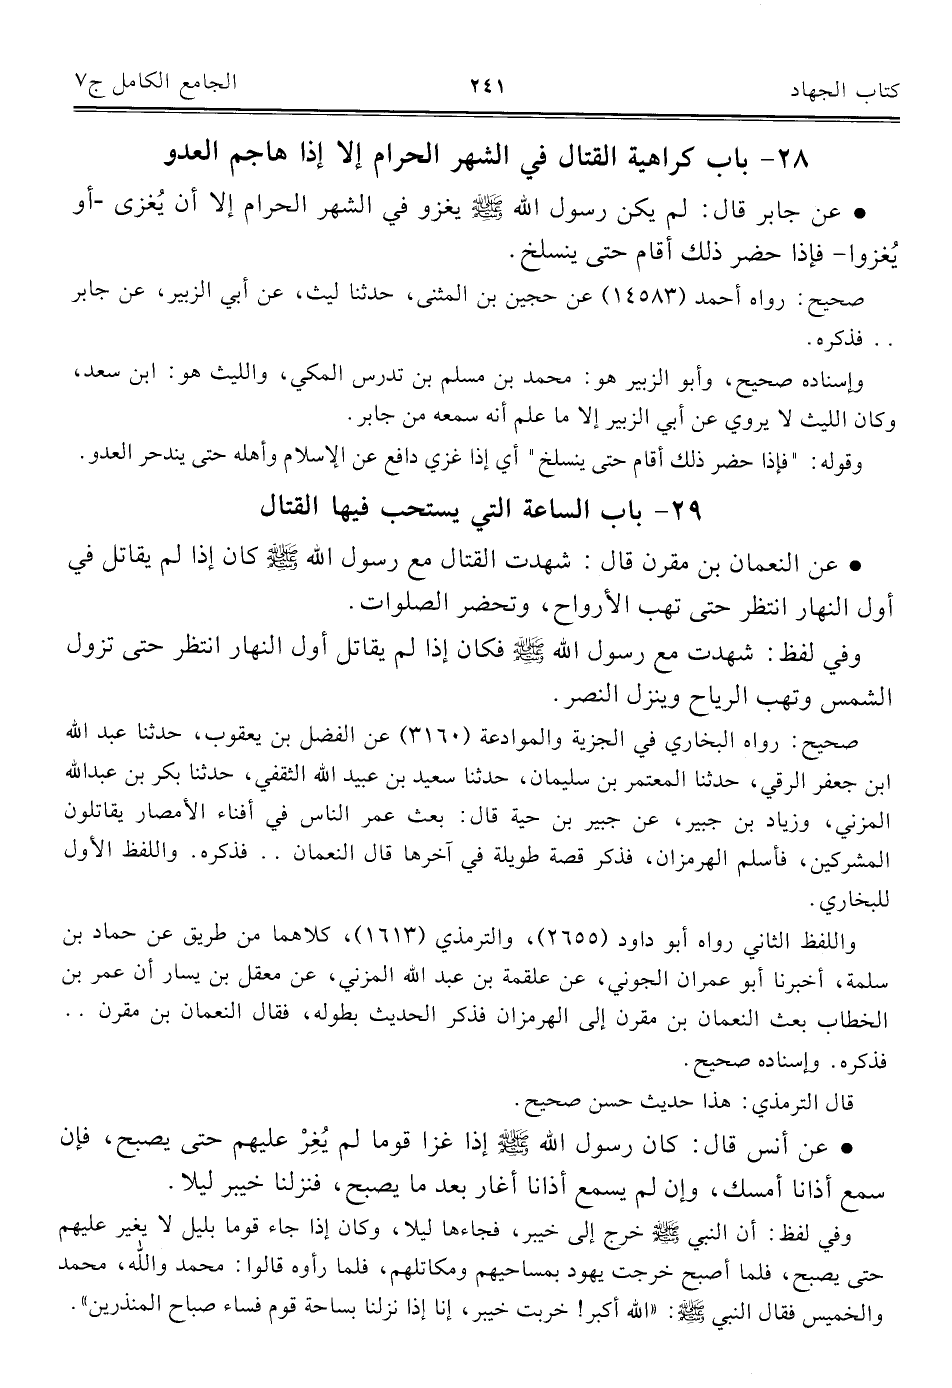 كتاب الجهاد ٢٤١ الجامع الكامل ج٧
٢٨- باب كراهية القتال في الشهر الحرام إلا إذا هاجم العدو
• عن جابر قال: لم يكن رسول الله ﷺ يغزو في الشهر الحرام إلا أن يُغزى -أو
يُغزوا- فإذا حضر ذلك أقام حتى ينسلخ.
صحيح: رواه أحمد (١٤٥٨٣) عن حجين بن المثنى، حدثنا ليث، عن أبي الزبير، عن جابر
.. فذكره.
وإسناده صحيح، وأبو الزبير هو: محمد بن مسلم بن تدرس المكي، والليث هو: ابن سعد،
وكان الليث لا يروي عن أبي الزبير إلا ما علم أنه سمعه من جابر.
وقوله: "فإذا حضر ذلك أقام حتى ينسلخ" أي إذا غزي دافع عن الإسلام وأهله حتى يندحر العدو.
٢٩- باب الساعة التي يستحب فيها القتال
• عن النعمان بن مقرن قال : شهدت القتال مع رسول الله ﷺ كان إذا لم يقاتل في
أول النهار انتظر حتى تهب الأرواح، وتحضر الصلوات.
وفي لفظ: شهدت مع رسول الله ﷺ فكان إذا لم يقاتل أول النهار انتظر حتى تزول
الشمس وتهب الرياح وينزل النصر.
صحيح: رواه البخاري في الجزية والموادعة (٣١٦٠) عن الفضل بن يعقوب، حدثنا عبد الله
ابن جعفر الرقي، حدثنا المعتمر بن سليمان، حدثنا سعيد بن عبيد الله الثقفي، حدثنا بكر بن عبدالله
المزني، وزياد بن جبير، عن جبير بن حية قال: بعث عمر الناس في أفناء الأمصار يقاتلون
المشركين، فأسلم الهرمزان، فذكر قصة طويلة في آخرها قال النعمان .. فذكره. واللفظ الأول
للبخاري.
واللفظ الثاني رواه أبو داود (٢٦٥٥)، والترمذي (١٦١٣)، كلاهما من طريق عن حماد بن
سلمة، أخبرنا أبو عمران الجوني، عن علقمة بن عبد الله المزني، عن معقل بن يسار أن عمر بن
الخطاب بعث النعمان بن مقرن إلى الهرمزان فذكر الحديث بطوله، فقال النعمان بن مقرن ..
فذكره. وإسناده صحيح.
قال الترمذي: هذا حديث حسن صحيح.
• عن أنس قال: كان رسول الله ﷺ إذا غزا قوما لم يُغِرْ عليهم حتى يصبح، فإن
سمع أذانا أمسك، وإن لم يسمع أذانا أغار بعد ما يصبح، فنزلنا خيبر ليلا.
وفي لفظ: أن النبي ﷺ خرج إلى خيبر، فجاءها ليلا، وكان إذا جاء قوما بليل لا يغير عليهم
حتى يصبح، فلما أصبح خرجت يهود بمساحيهم ومكاتلهم، فلما رأوه قالوا: محمد والله، محمد
والخميس فقال النبي ﷺ: «الله أكبر! خربت خيبر، إنا إذا نزلنا بساحة قوم فساء صباح المنذرين».